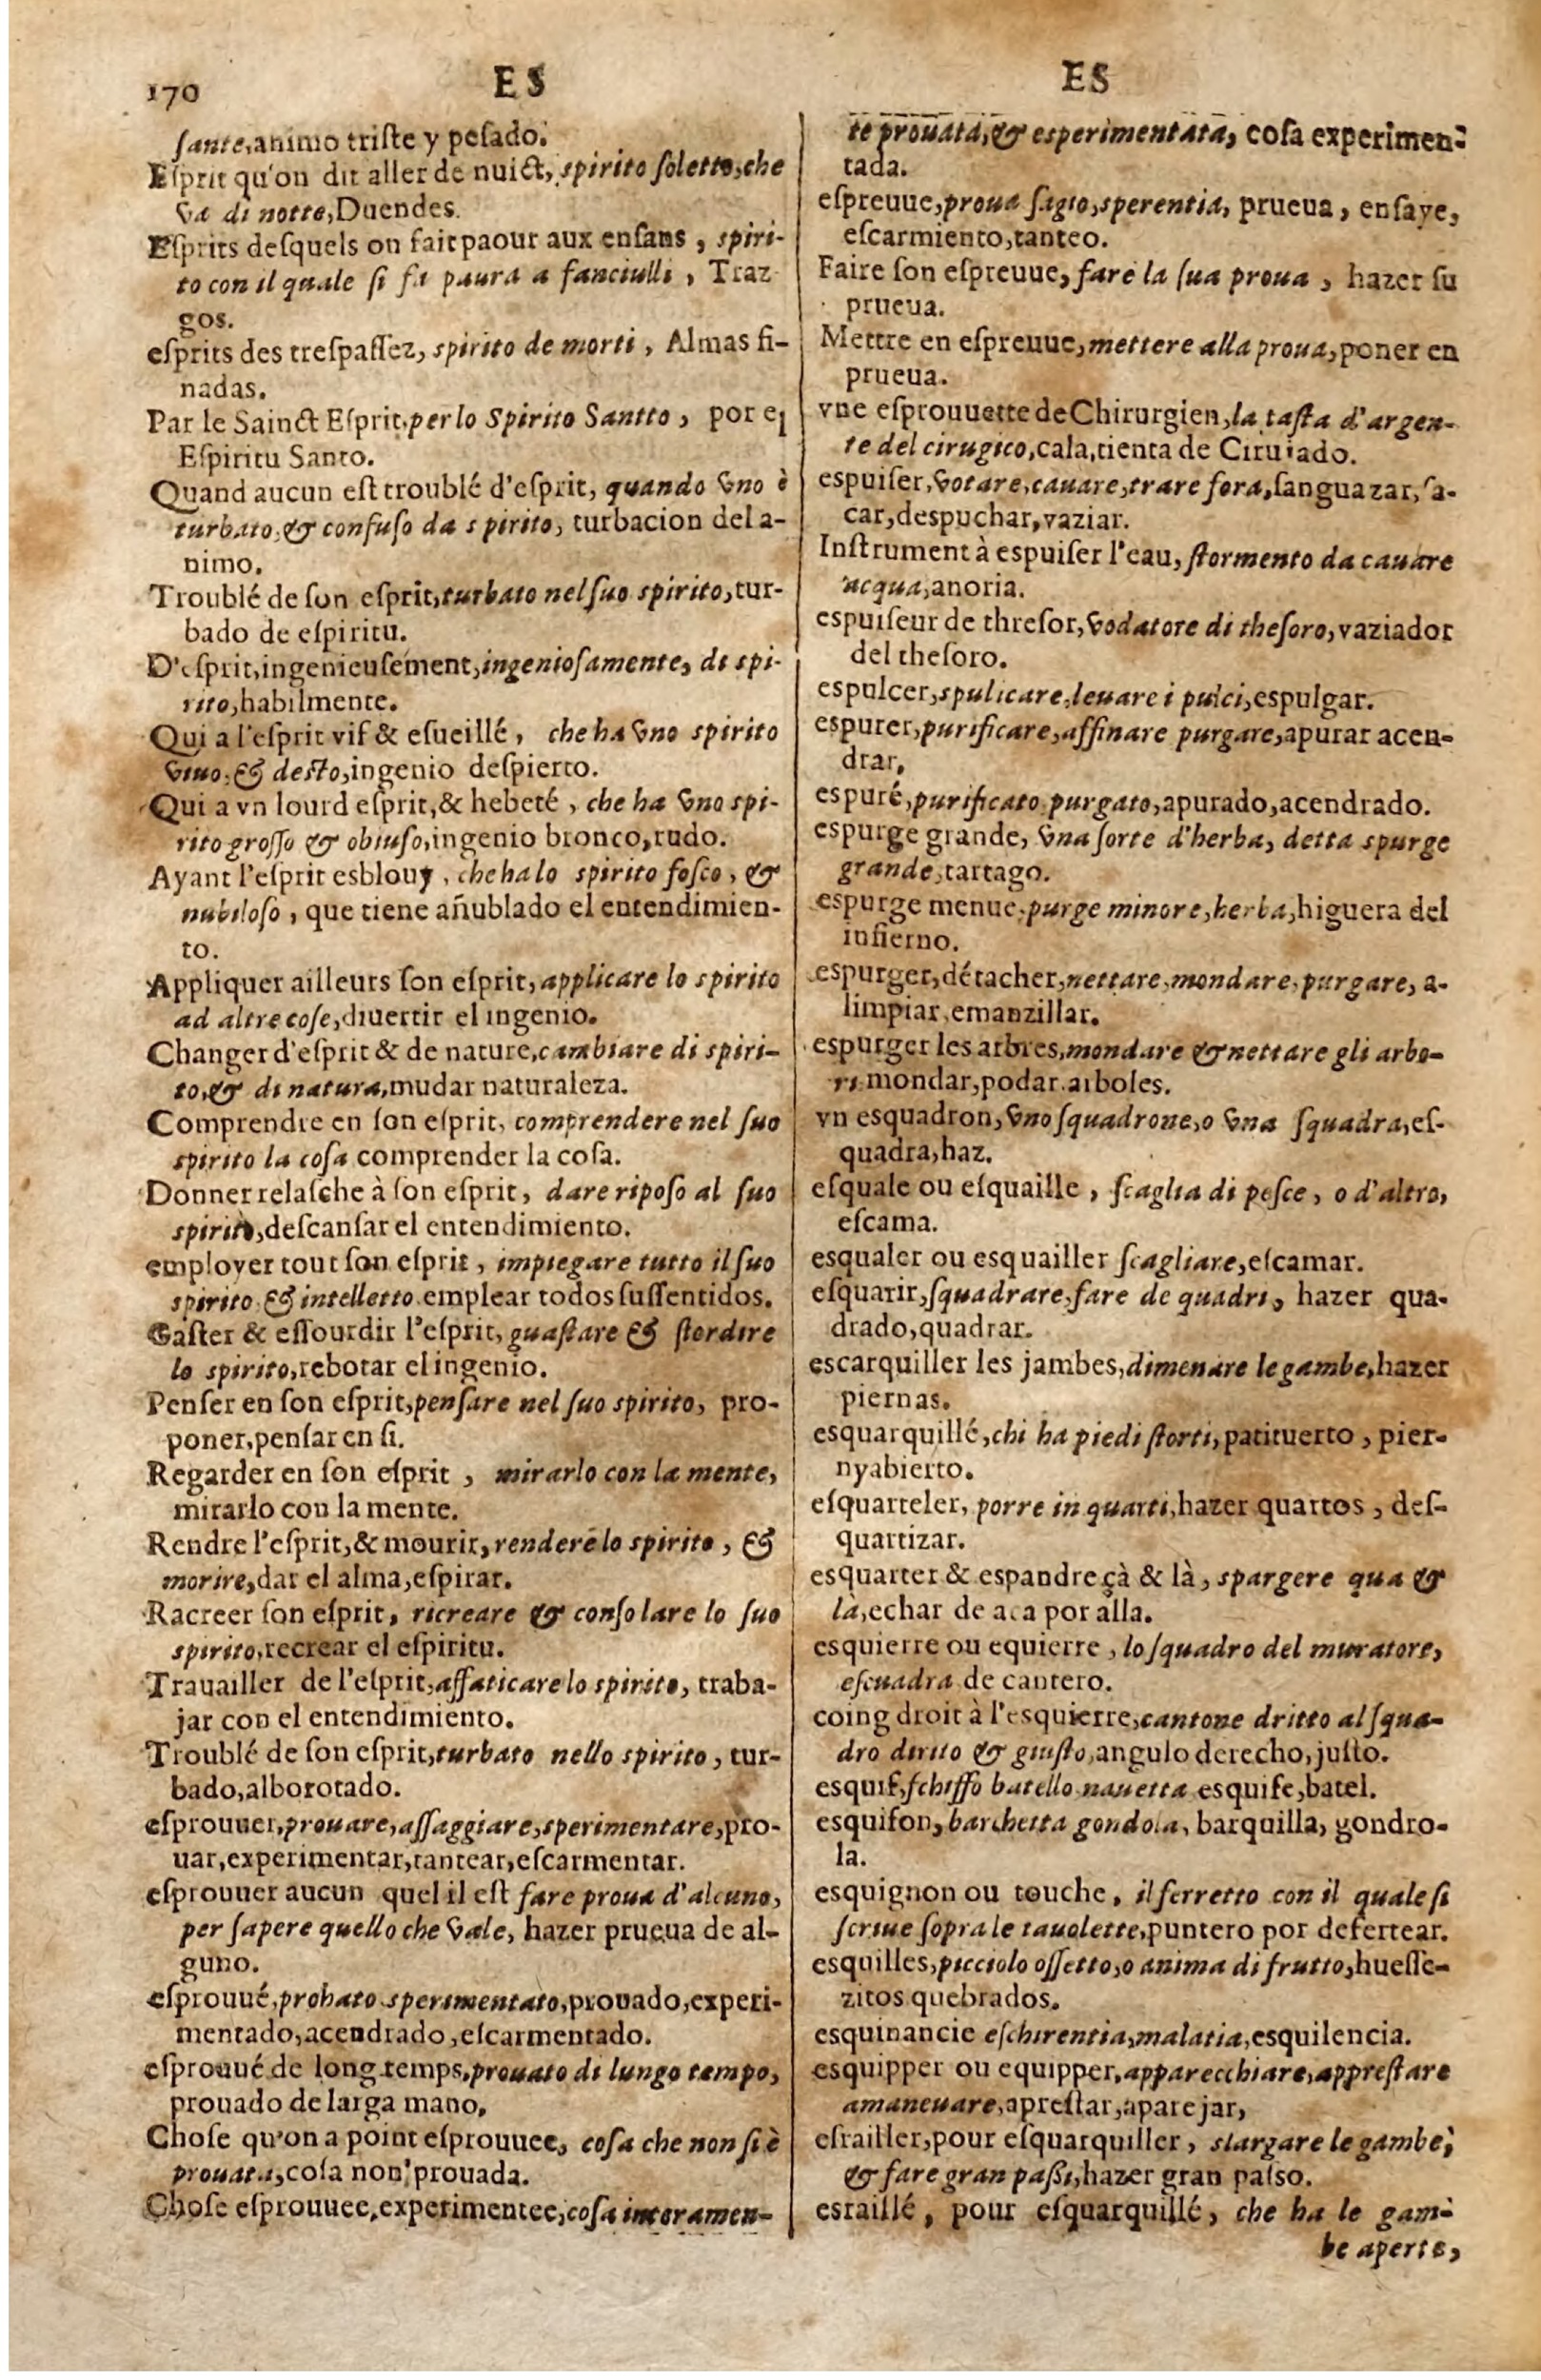 170
ES
ES
ſante, animo triſte y peſado.
Eſprit qu'on dit aller de nuict, spirito ſoletto, che
va di notte, Duendes.
Eſprits deſquels on fait paour aux enfans, spiri-
to con il quale ſi fa paura a fanciulli, Traz
gos.
eſprits des treſpaſſez, spirito de morti, Almas fi-
nadas.
Par le Sainct Eſprit, per lo Spirito Santto, por el
Eſpiritu Santo.
Quand aucun eſt troublé d'eſprit, quando vno è
turbato, & confuſo da spirito, turbacion del a-
nimo.
Troublé de ſon eſprit, turbato nel ſuo spirito, tur-
bado de eſpiritu.
D'eſprit, ingenieuſement, ingenioſamente, di spi-
rito, habilmente.
Qui a l'eſprit vif & eſueillé, che ha vno spirito
viuo, & deſto, ingenio deſpierto.
Qui a vn lourd eſprit, & hebeté, che ha vno spi-
rito groſſo & obtuſo, ingenio bronco, rudo.
Ayant l'eſprit esblouy, che ha lo spirito foſco, &
nubiloſo, que tiene añublado el entendimien-
to.
Appliquer ailleurs ſon eſprit, applicare lo spirito
ad altre coſe, diuertir el ingenio.
Changer d'eſprit & de nature, cambiare di spiri-
to, & di natura, mudar naturaleza.
Comprendre en ſon eſprit, comprendere nel ſuo
spirito la coſa comprender la coſa.
Donner relaſche à ſon eſprit, dare ripoſo al ſuo
spirito, deſcanſar el entendimiento.
employer tout ſon eſprit, impiegare tutto il ſuo
spirito & intelletto emplear todos ſuſſentidos.
Gaſter & eſſourdir l'eſprit, guaſtare & ſtordire
lo spirito, rebotar el ingenio.
Penſer en ſon eſprit, penſare nel ſuo spirito, pro-
poner, penſar en ſi.
Regarder en ſon eſprit, mirarlo con la mente,
mirarlo con la mente.
Rendre l'eſprit, & mourir, rendere lo spirito, &
morire, dar el alma, eſpirar.
Racreer ſon eſprit, ricreare & conſolare lo ſuo
spirito, recrear el eſpiritu.
Trauailler de l'eſprit, affaticare lo spirito, traba-
jar con el entendimiento.
Troublé de ſon eſprit, turbato nello spirito, tur-
bado, alborotado.
eſprouuer, prouare, aſſaggiare, sperimentare, pro-
uar, experimentar, tantear, eſcarmentar.
eſprouuer aucun quel il eſt fare proua d'alcuno,
per ſapere quello che vale, hazer prueua de al-
guno.
eſprouué, probato sperimentato, prouado, experi-
mentado, acendrado, eſcarmentado.
eſprouué de long temps, prouato di lungo tempo,
prouado de larga mano.
Choſe qu'on a point eſprouuee, coſa che non ſi è
prouata, coſa non prouada.
Choſe eſprouuee, experimentee, coſa interamen-
te prouata, & esperimentata, coſa experimen-
tada.
eſpreuue, proua ſagio, sperentia, prueua, enſaye,
eſcarmiento, tanteo.
Faire ſon eſpreuue, fare la ſua proua, hazer ſu
prueua.
Mettre en eſpreuue, mettere alla proua, poner en
prueua.
vne eſprouuette de Chirurgien, la taſta d'argen-
te del cirugico, cala, tienta de Ciruiado.
espuiſer, votare, cauare, trare fora, ſanguazar, ſa-
car, despuchar, vaziar.
Inſtrument à espuiſer l'eau, ſtormento da cauare
acqua, anoria.
espuiſeur de threſor, vodatore di theſoro, vaziador
del theſoro.
espulcer, spulicare, leuare i pulci, espulgar.
espurer, purificare, affinare purgare, apurar acen-
drar.
espuré, purificato purgato, apurado, acendrado.
espurge grande, vna ſorte d'herba, detta spurge
grande, tartago.
espurge menue, purge minore, herba, higuera del
infierno.
espurger, détacher, nettare, mondare, purgare, a-
limpiar, emanzillar.
espurger les arbres, mondare & nettare gli arbo-
ri mondar, podar arboles.
vn esquadron, vno ſquadrone, o vna ſquadra, eſ-
quadra, haz.
eſquale ou eſquaille, ſcaglia di peſce, o d'altro,
eſcama.
esqualer ou esquailler ſcagliare, eſcamar.
eſquarir, ſquadrare, fare de quadri, hazer qua-
drado, quadrar.
escarquiller les jambes, dimenare le gambe, hazer
piernas.
esquarquillé, chi ha piedi ſtorti, patituerto, pier-
nyabierto.
eſquarteler, porre in quarti, hazer quartos, deſ-
quartizar.
esquarter & espandre çà & là, spargere qua &
là, echar de aca por alla.
esquierre ou equierre, lo ſquadro del muratore,
eſcuadra de cantero.
coing droit à l'esquierre, cantone dritto al ſqua-
dro diritto & giuſto, angulo derecho, juſto.
esquif, ſchiffo batello nauetta esquife, batel.
esquifon, barchetta gondola, barquilla, gondro-
la.
esquignon ou touche, il ferretto con il quale ſi
ſcriue ſopra le tauolette, puntero por defertear.
esquilles, picciolo oſſetto, o anima di frutto, hueſſe-
zitos quebrados.
esquinancie eſchirentia, malatia, esquilencia.
esquipper ou equipper, apparecchiare, appreſtare
amaneuare, apreſtar, aparejar,
eſrailler, pour eſquarquiller, slargare le gambe,
& fare gran paſſi, hazer gran paſſo.
esraillé, pour eſquarquillé, che ha le gam-
be aperte,